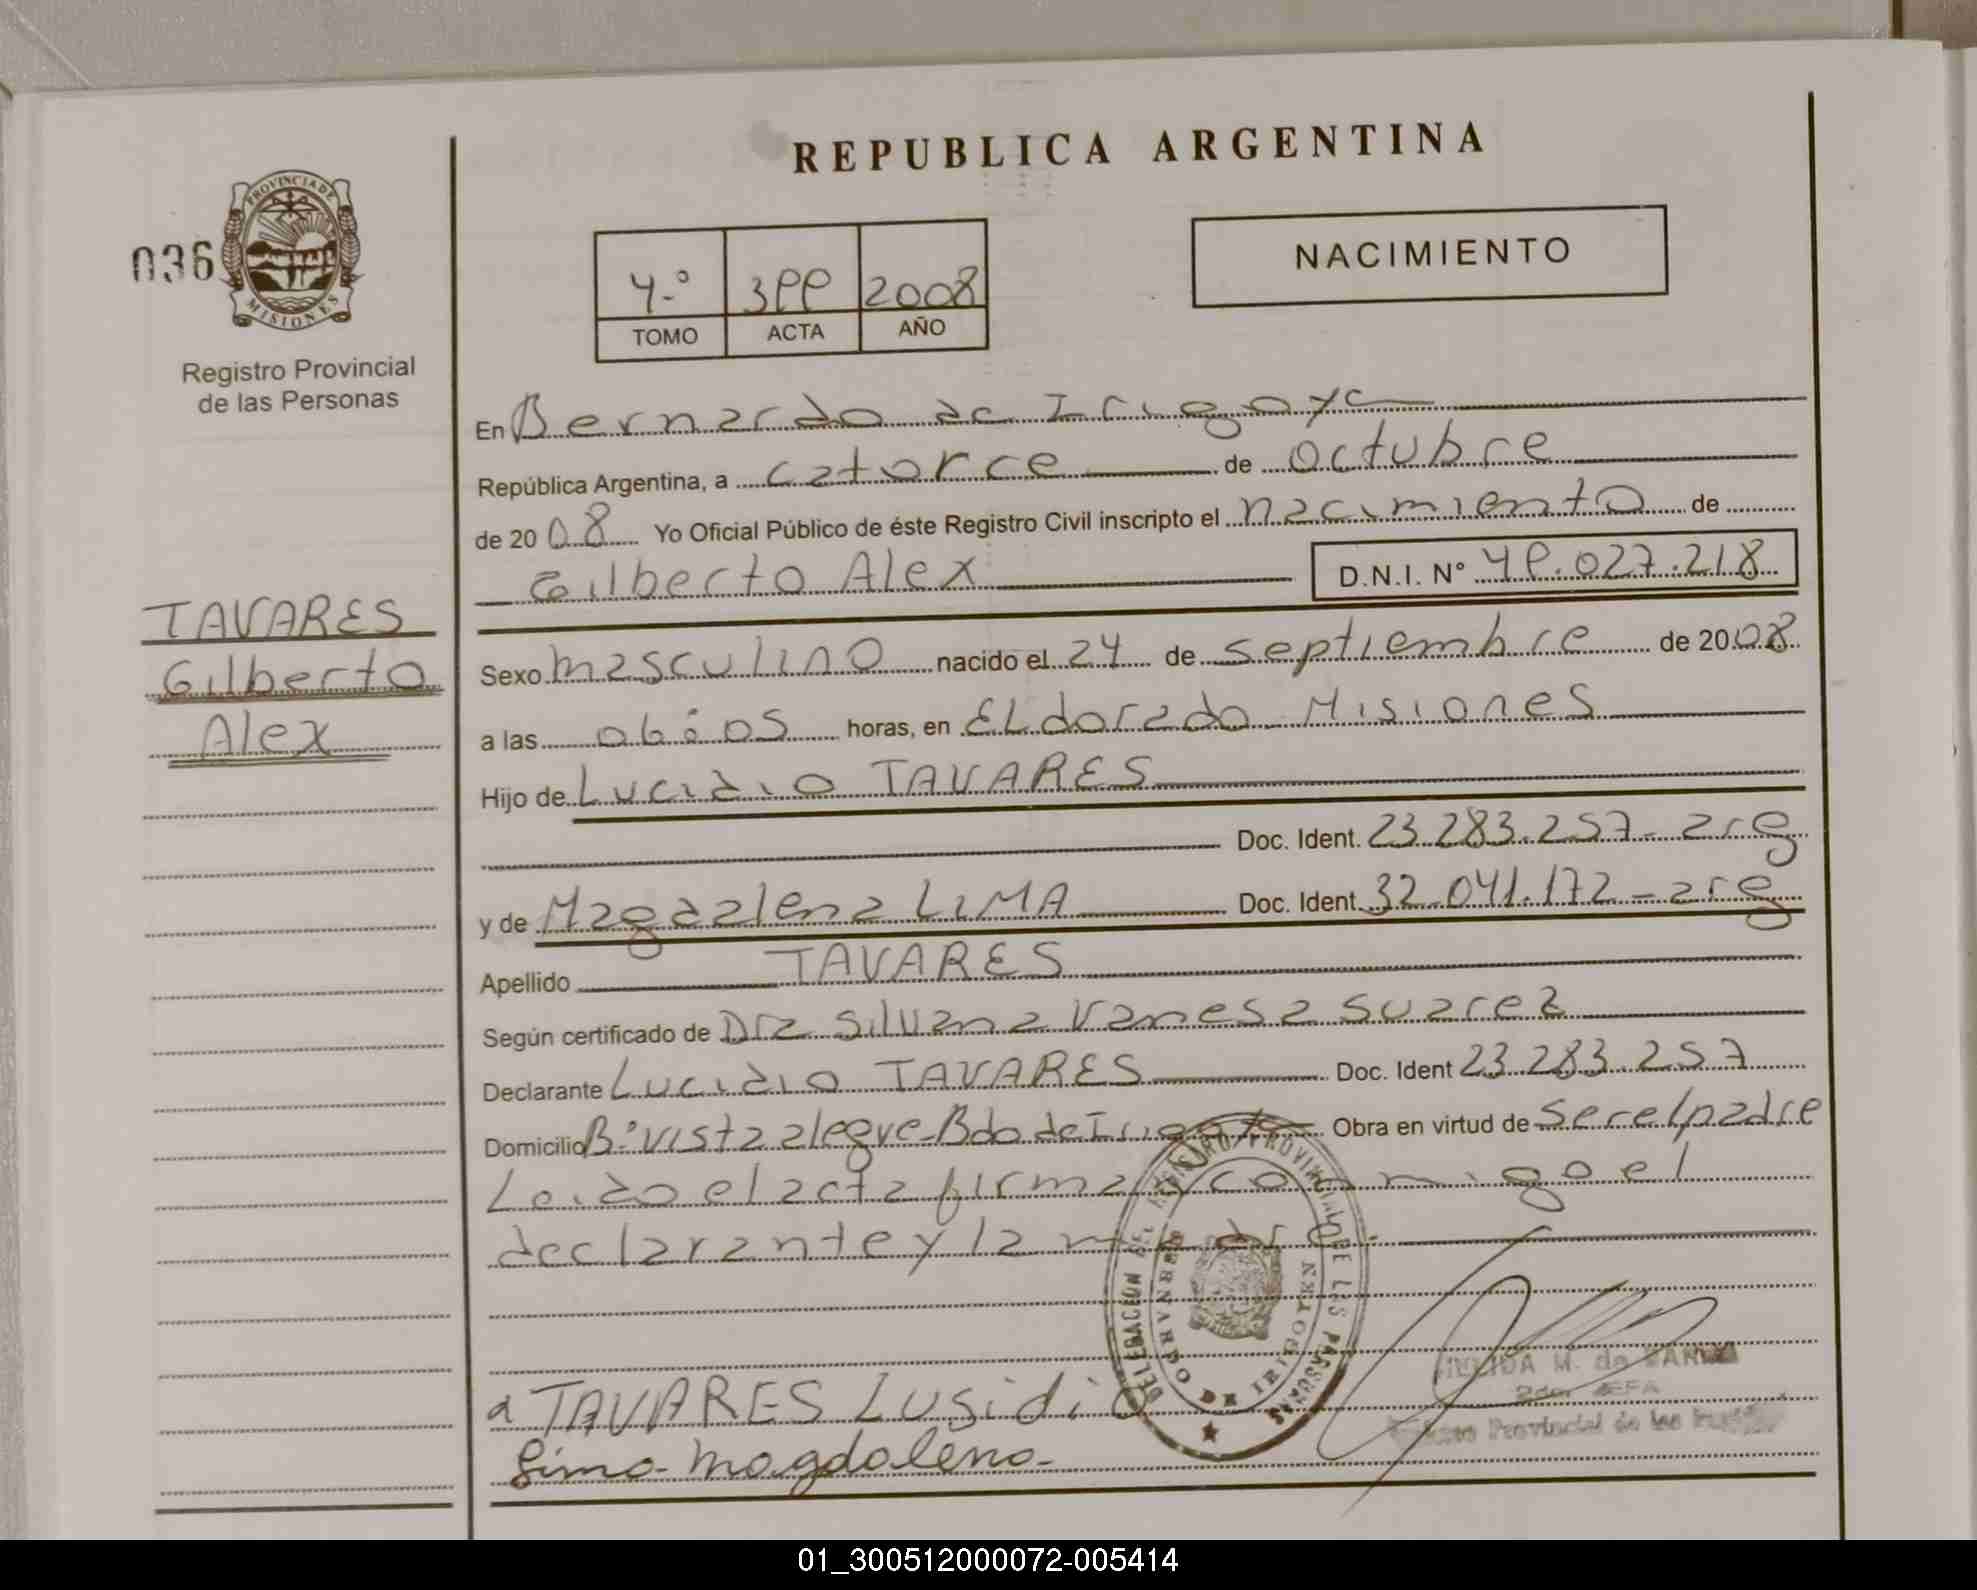 REPUBLICA ARGENTINA
036
PROVINCIA DE
MISIONES
Registro Provincial
de las Personas
NACIMIENTO
4º 399 2008
TOMO ACTA AÑO
En Bernardo de Irigoye
República Argentina, a catorce de octubre
de 2008 Yo Oficial Público de éste Registro Civil inscripto el nacimiento de
Gilberto Alex D.N.I. N° 49.027.218
TAVARES
Gilberto
Alex
Sexo masculino nacido el 24 de septiembre de 2008
a las 06:05 horas, en Eldorado Misiones
Hijo de Lucidio TAVARES
Doc. Ident. 23.283.257 - arg
y de Magdalena LIMA Doc. Ident. 32.041.172 - arg
Apellido TAVARES
Según certificado de Dra Silvana Vanesa Suarez
Declarante Lucidio TAVARES Doc. Ident 23.283.257
Domicilio B° vista alegre - Bdo de Irigoye Obra en virtud de ser el padre
Leido el acta firman conmigo el
declarante y la madre.-
DELEGACION DEL REGISTRO PROVINCIAL DE LAS PERSONAS
BERNARDO DE IRIGOYEN
M. de
2da. JEFA
Provincial de las
TAVARES Lusidio
Lima Magdalena
01_300512000072-005414